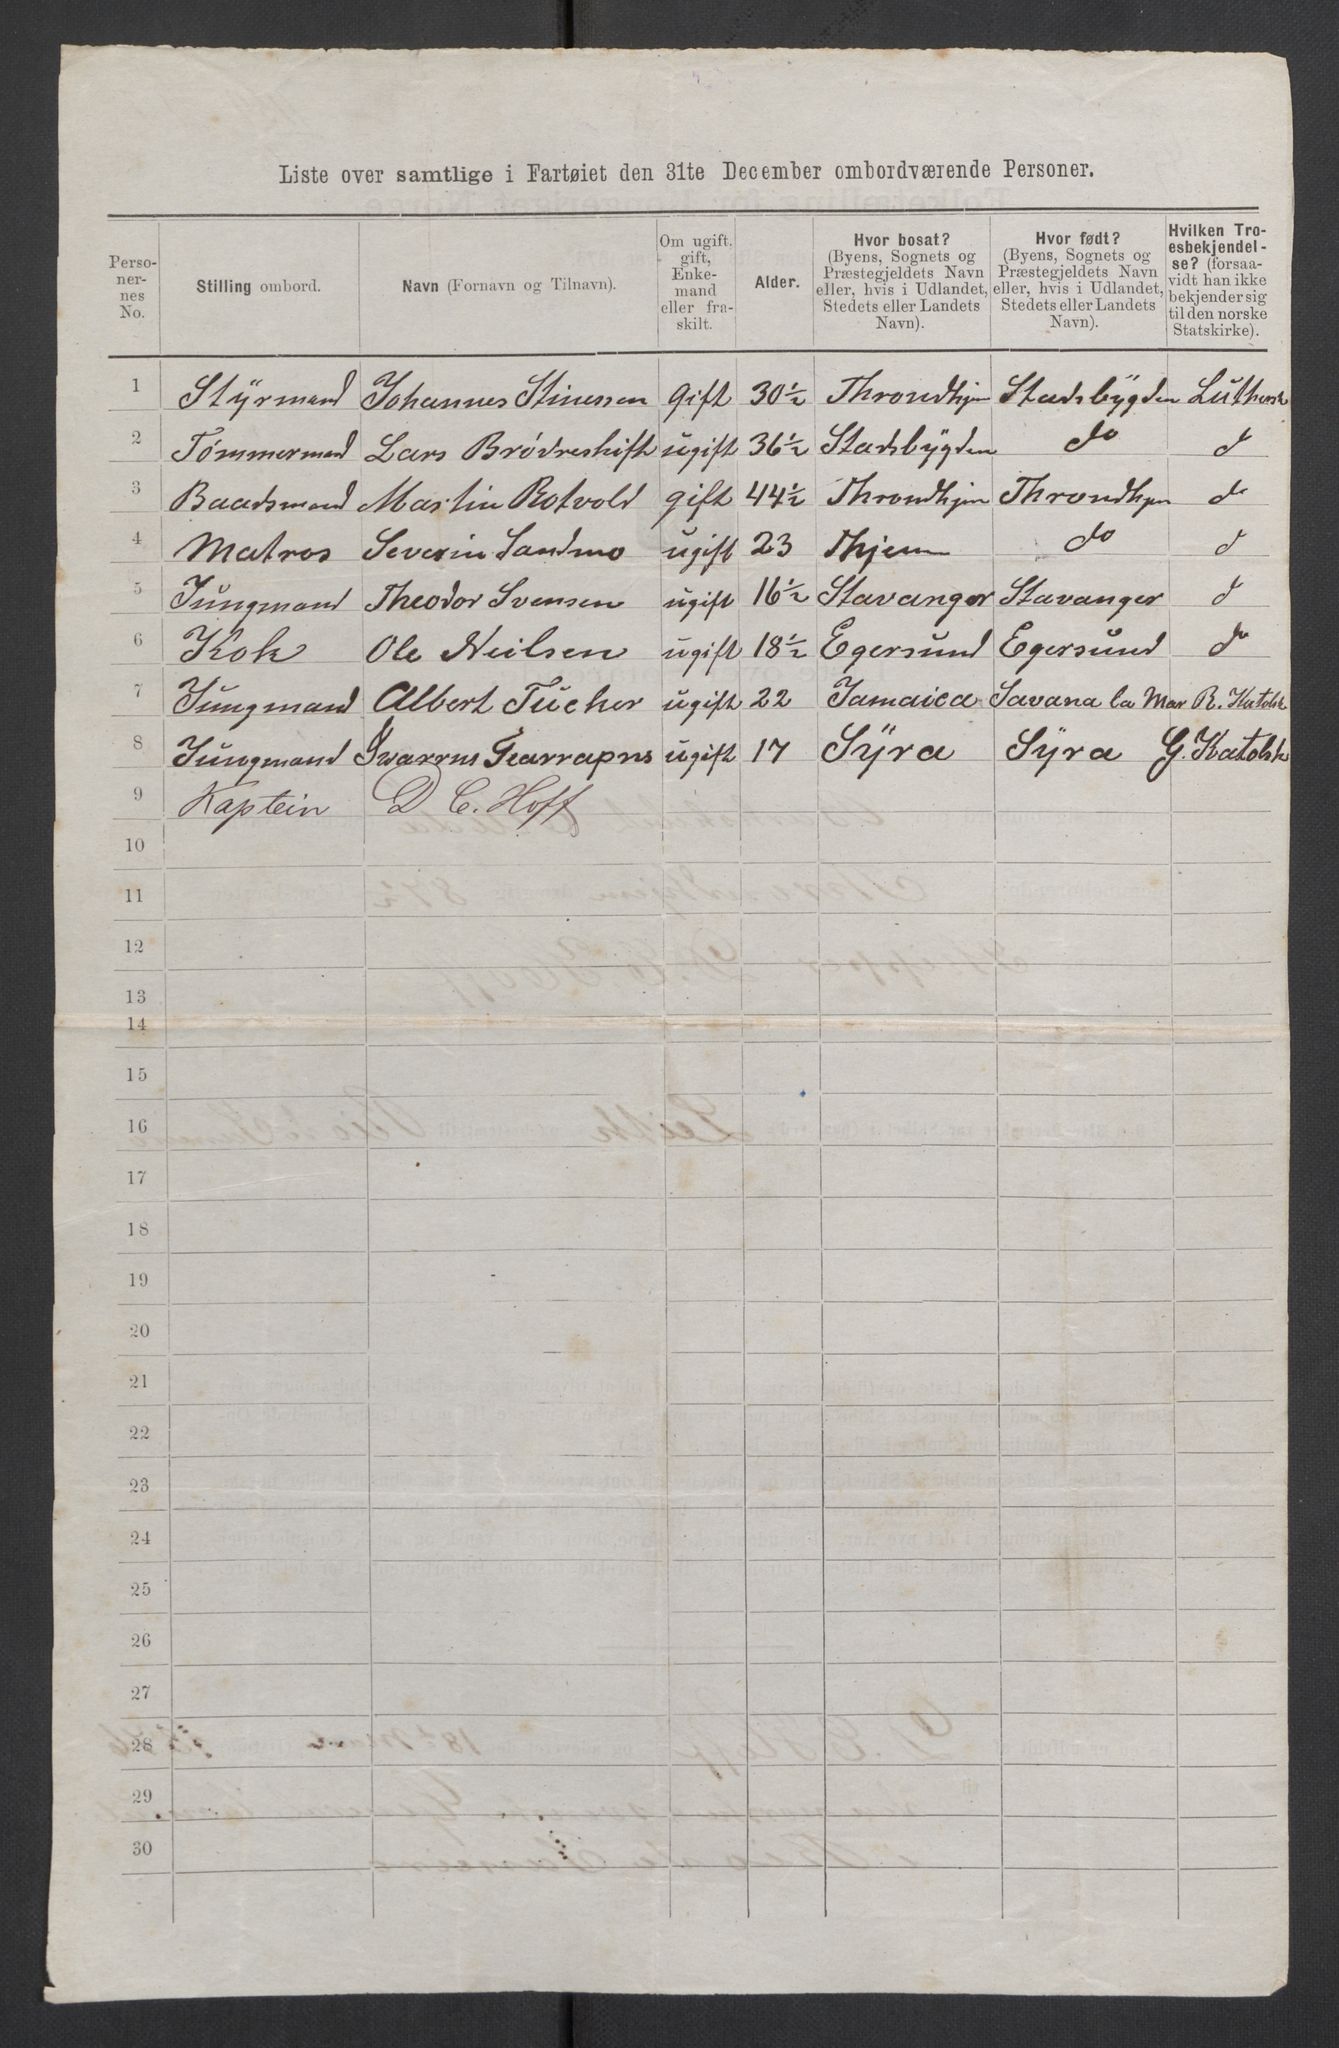 Liste over samtlige i Fartøiet den 31te December ombordværende Personer.
Personernes No. | Stilling ombord. | Navn (Fornavn og Tilnavn). | Om ugift, gift, Enkemand eller fraskilt. | Alder. | Hvor bosat? (Byens, Sognets og Præstegjeldets Navn eller, hvis i Udlandet, Stedets eller Landets Navn). | Hvor født? (Byens, Sognets og Præstegjeldets Navn eller, hvis i Udlandet, Stedets eller Landets Navn). | Hvilken Troesbekjendelse? (forsaavidt han ikke bekjender sig til den norske Statskirke).
1 Styrmand Johannes Stinessen gift 30½ Throndhjem Stadsbygden Luthersk
2 Tømmermand Lars Brødreskift ugift 36½ Stadsbygden do d
3 Baadsmand Martin Rotvold gift 44½ Throndhjem Throndhjem do
4 Matros Severin Sandmo ugift 23 Thjem do d
5 Jungmand Theodor Svensen ugift 16½ Stavanger Stavanger d
6 Kok Ole Neilsen ugift 18½ Egersund Egersund do
7 Jungmand Albert Tucker ugift 22 Jamaica Savana la Mar R. Katolsk
8 Jungmand ugift 17 Syra Syra G. Katolsk
9 Kaptein D C. Hoff
10
11
12
13
14
15
16
17
18
19
20
21
22
23
24
25
26
27
28
29
30